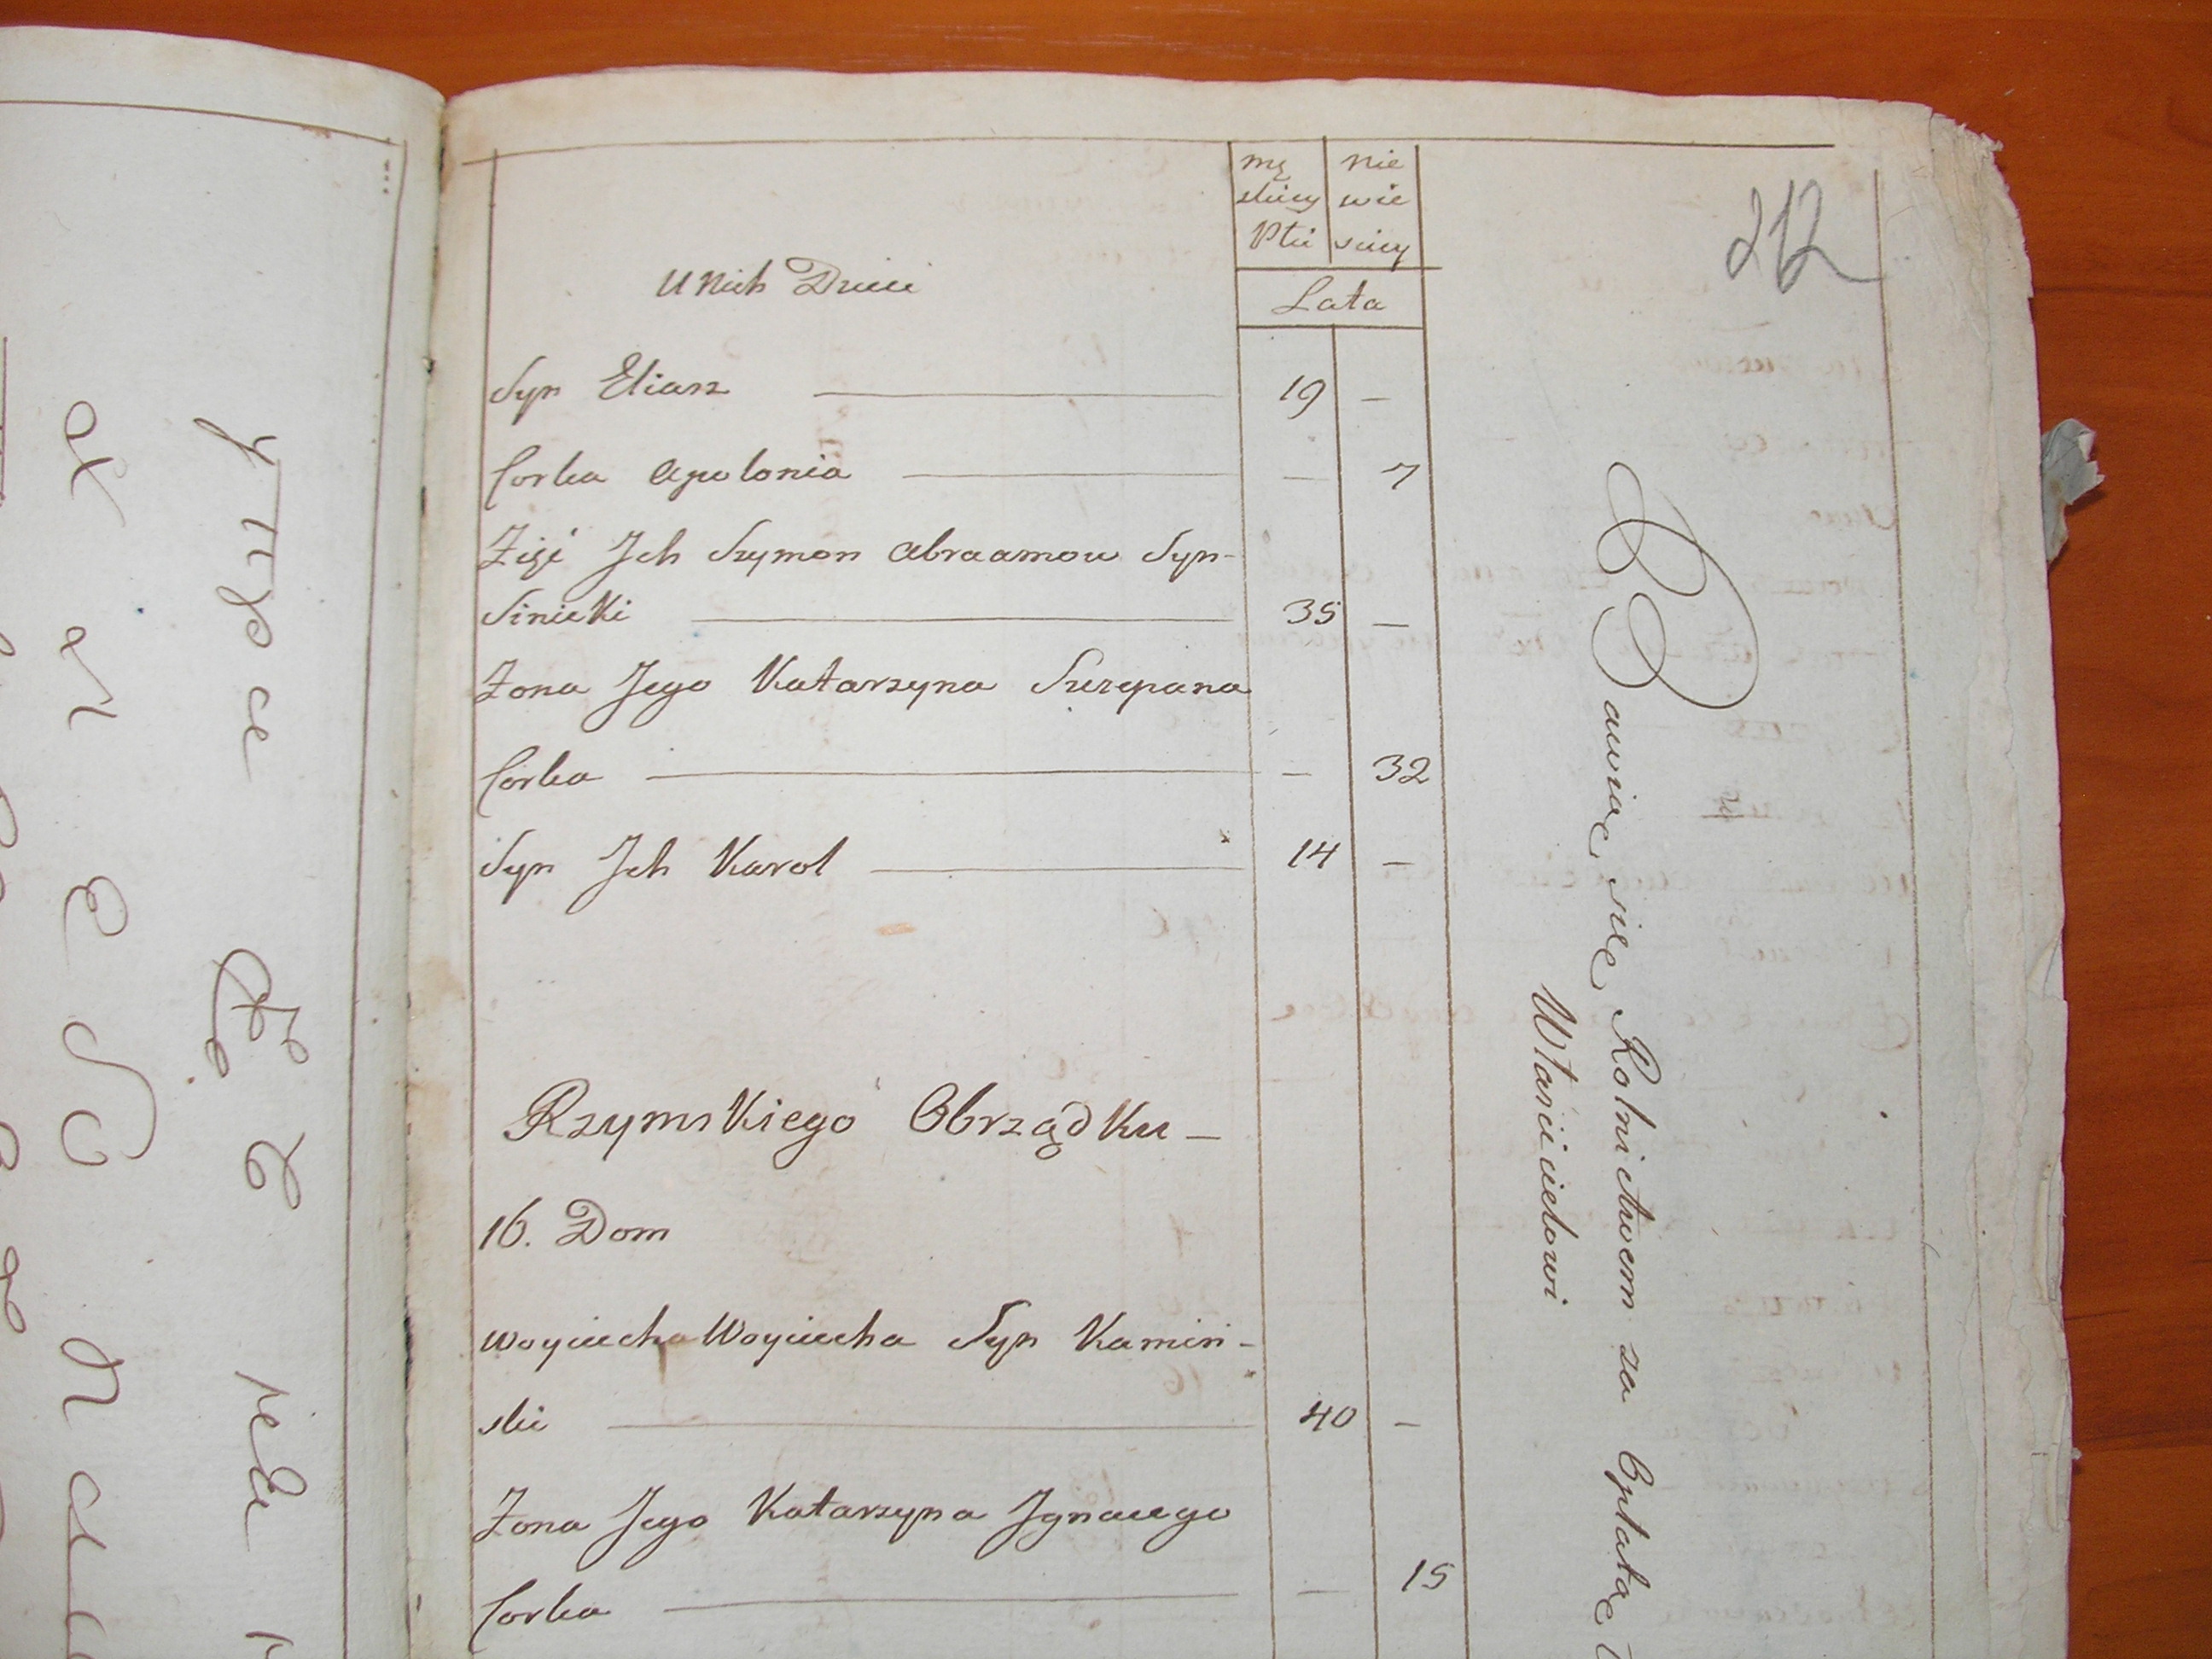 mę
skiey
Płci
nie
wie
sciey
212
U Nich Dzieci
Lata
Syn Eliasz — 19 —
Corka Apolonia — — 7
Zięć Jch Szymon Abraamow Syn-
Sinicki — 35 —
Żona Jego Katarzyna Szczepana
Corka — — 32
Syn Jch Karol — 14 —
Rzymskiego Obrządku —
16. Dom
Woyciecha Woyciecha Syn Kamiń-
ski — 40 —
Żona Jego Katarzyna Jgnacego
Corka — — 15
Bawiąc się Rolnictwem za Opłatą
Właścicielowi